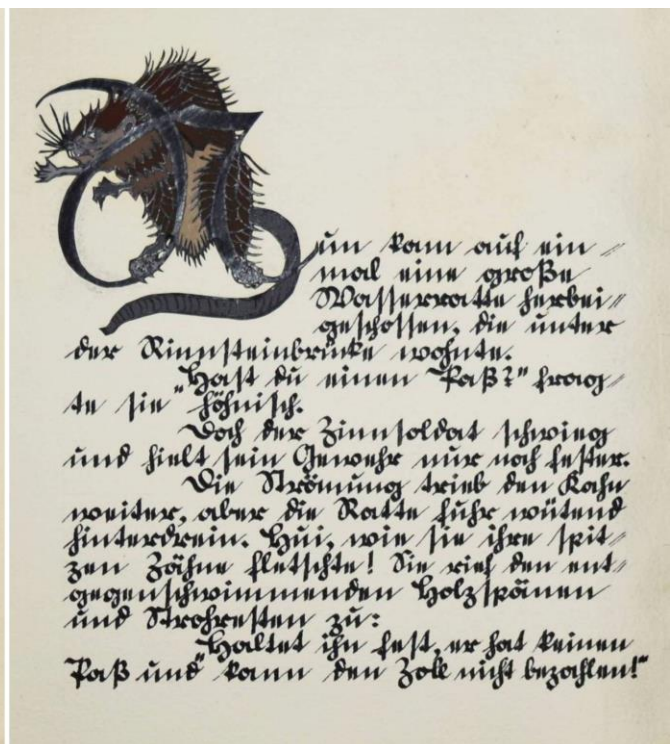 Nun kam auf ein-
mal eine große
Wasserratte herbei-
geschossen, die unter
der Rinnsteinbrücke wohnte.
"Hast du einen Paß?" frag-
te sie höhnisch.
Doch der Zinnsoldat schwieg
und hielt sein Gewehr nur noch fester.
Die Strömung trieb den Kahn
weiter, aber die Ratte fuhr wütend
hinterdrein. Hui, wie sie ihre spit-
zen Zähne fletschte! Sie rief den ent-
gegenschwimmenden Holzspänen
und Strohresten zu:
"Haltet ihn fest, er hat keinen
Paß und kann den Zoll nicht bezahlen!"